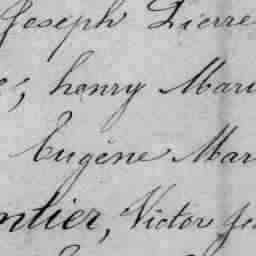 Joseph Pierre
henry Mari
Eugène Mar
ntier, Victor Jo